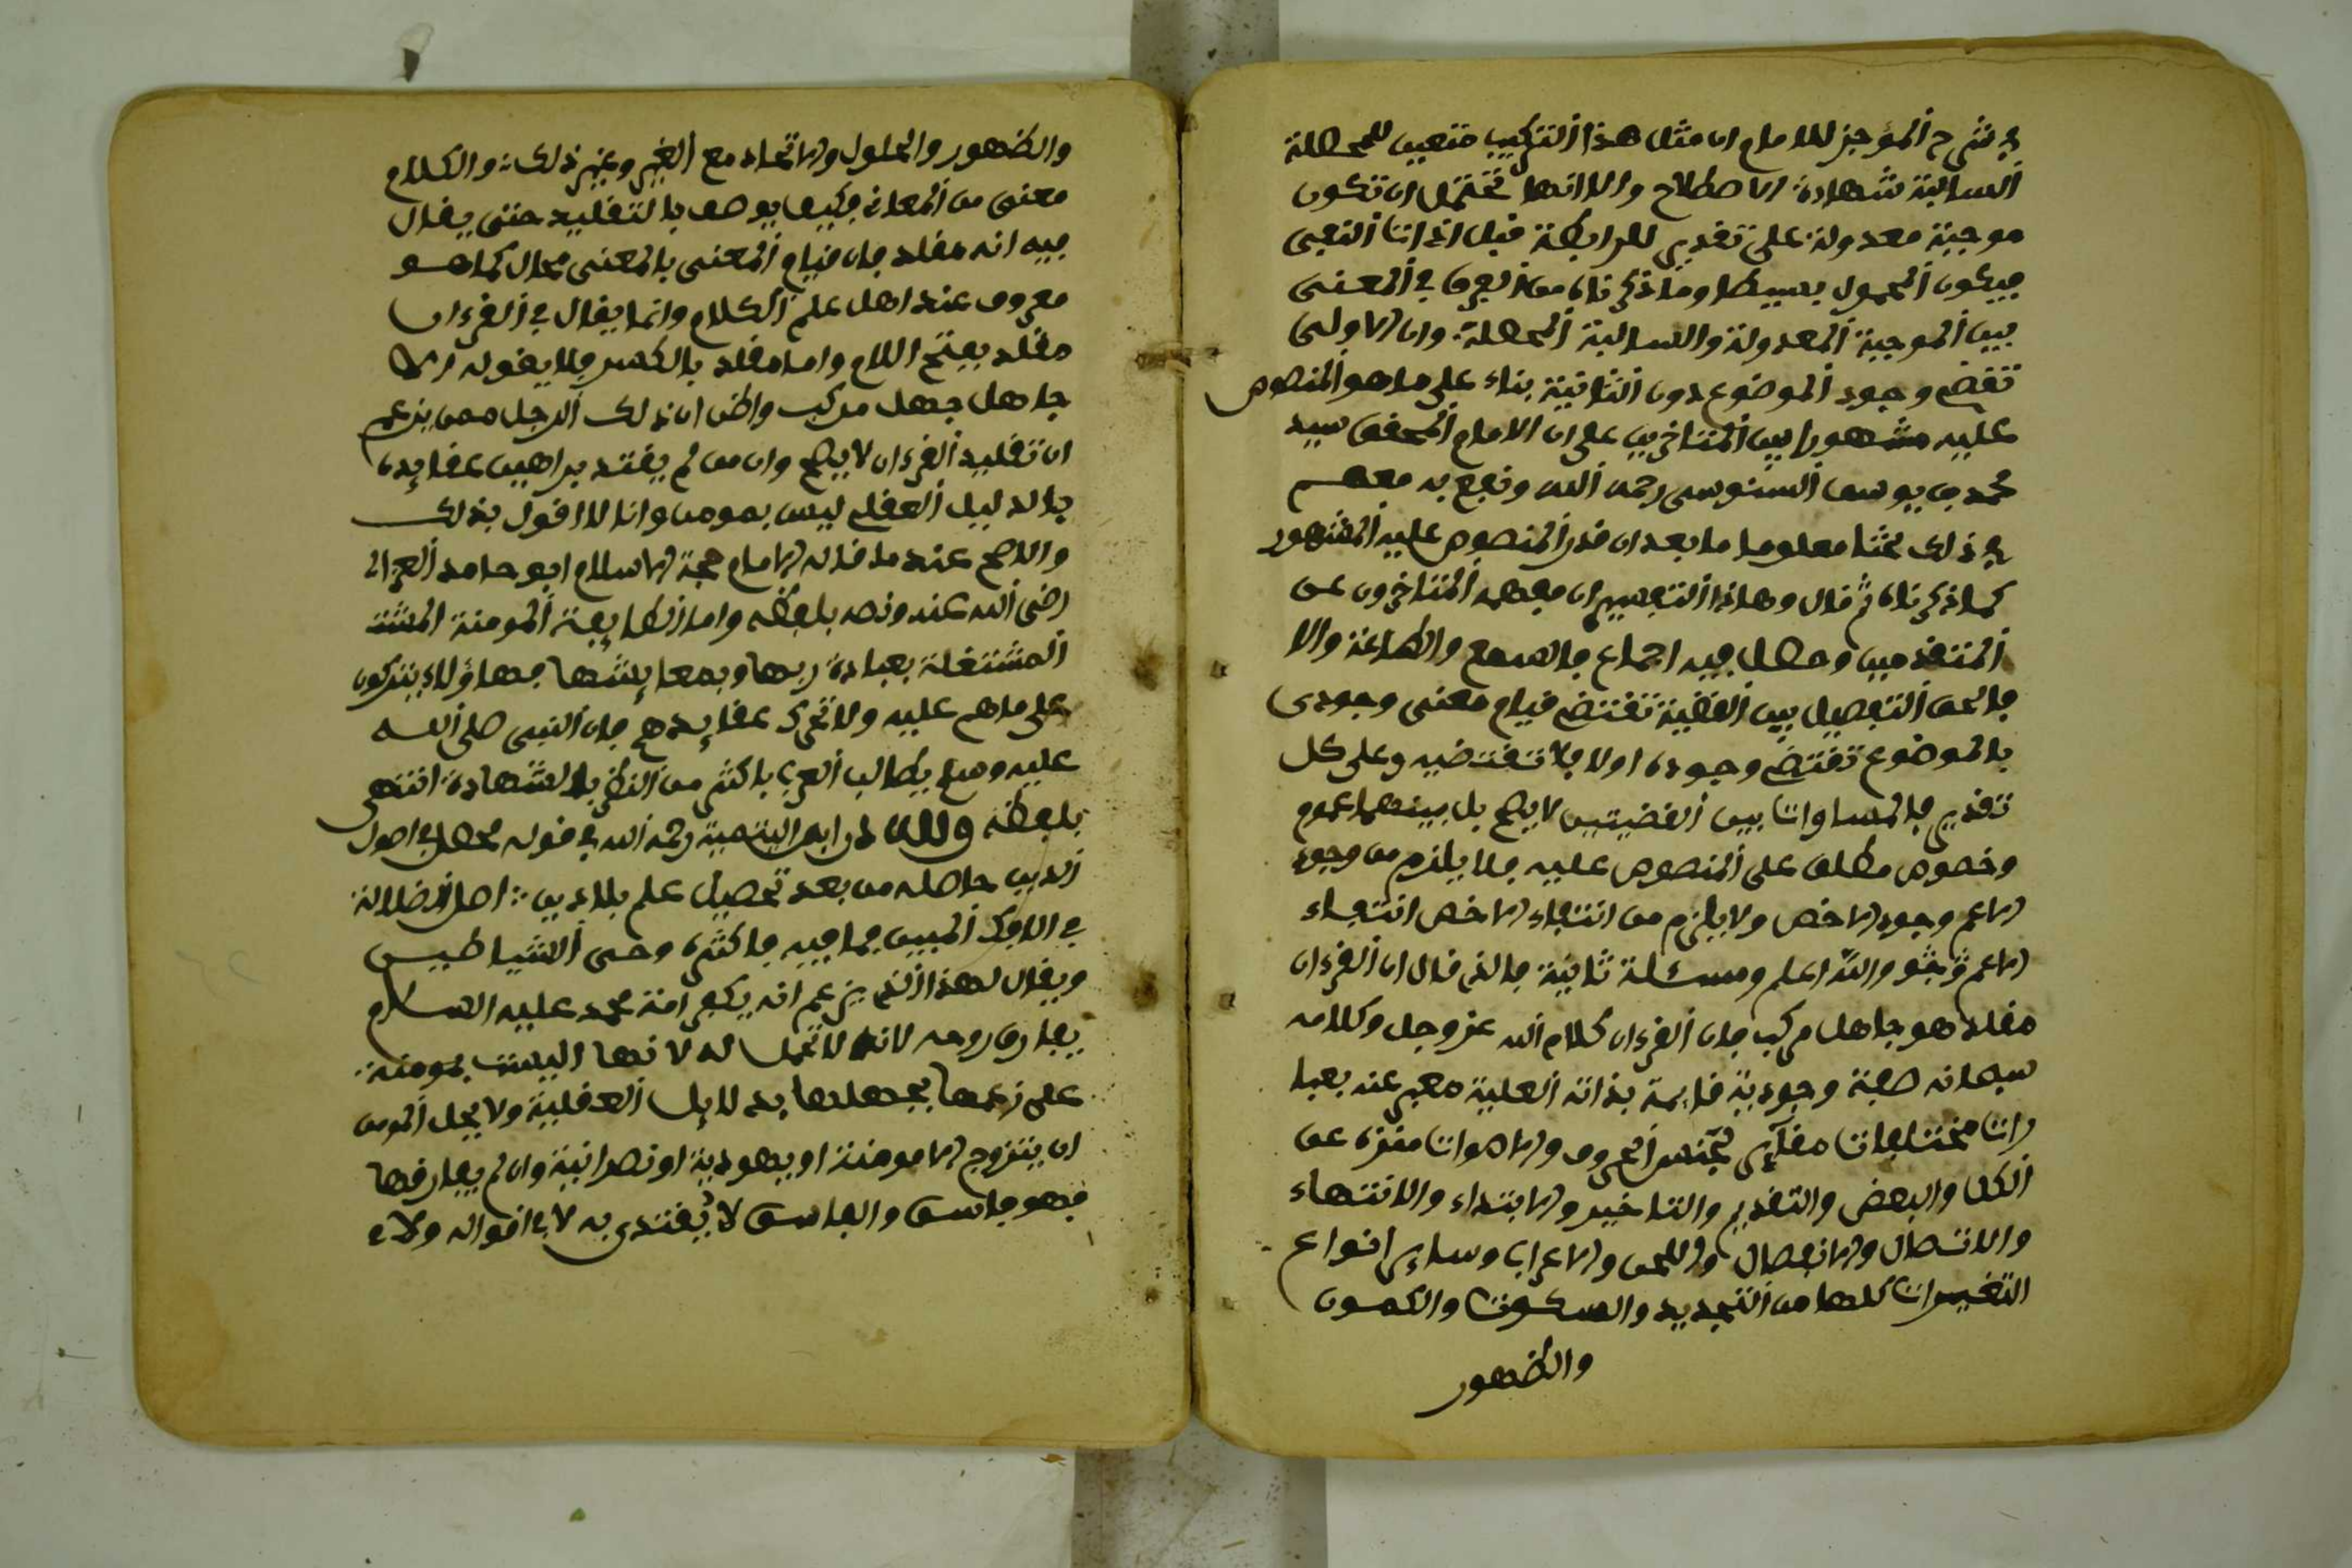 في شرح الموجز للامام ان مثل هذا التركيب متعين للمحصلة
السالبة شهادة الاصطلاح والا انها تحتمل ان تكون
موجبة معدولة على تقدير للرابطة قبل اذات النفى
فيكون المحمول بسيطا وما ذكرناه من الفرق في المعنى
بين الموجبة المعدولة والسالبة المحصلة وان الاولى
تقتضى وجود الموضوع دون الثانية بناء على ما هو المنصوص
عليه مشهورا بين المتاخرين على ان الامام المحقق سيد
محمد بن يوسف السنوسى رحمه الله ونفع به معهم
في ذلك بحثا معلوما ما بعد ان قدر المنصوص عليه المشهور
كما ذكرناه ثم قال وهاذا التقسيم ان فهمه المتاخرون عن
المتقدمين وحصل فيه اجماع فالسمع والطاعة والا
فالحق التفصيل بين القضية تقتضى قيام معنى وجودى
بالموضوع تقتضى وجوده اولا فلا تقتضيه وعلى كل
تقدير فالمساوات بين القضيتين لا يصح بل بينهما عموم
وخصوص مطلق على المنصوص عليه فلا يلزم من وجود
الاعم وجود الاخص ولا يلزم من انتفاء الاخص انتفاء
الاعم والله اعلم ومسئلة ثانية فالذى قال ان القرءان
مقلد هو جاهل مركب فان القرءان كلام الله عز وجل وكلامه
سبحانه صفة وجودية قايمة بذاته العلية معبر عنه بعبا
رات مختلفات مغاير لجنس الحروف والاصوات منزه عن
الكل والبعض والتقديم والتاخير والابتداء والانتهاء
والاتصال والانفصال واللحن والاعراب وساير انواع
التغييرات كلها من التجديد والسكوت والكمون
والظهور
والظهور والحلول والاتحاد مع الغير وغير ذلك والكلام
معنى من المعانى فكيف يوصف بالتقليد حتى يقال
فيه انه مقلد فان قيام المعنى بالمعنى محال كما هو
معروف عند اهل علم الكلام وانما يقال في القرءان
مقلد بفتح اللام واما مقلد بالكسر فلا يقوله الا
جاهل جهل مركب واظن ان ذلك الرجل ممن يزعم
ان تقليد القرءان لا يصح وان من لم يقتد براهين عقايده
بالدليل العقلى ليس بمومن وانا لا اقول بذلك
والاصح عندى ما قاله الامام حجة الاسلام ابو حامد الغزالى
رضى الله عنه ونصه بلفظه واما الطايفة المومنة المشت
المشتغلة بعبادة ربها وبمعايشها فهاؤلاء يتركون
على ما هم عليه ولا تحرك عقايدهم فان النبى صلى الله
عليه وسلم يطالب العرب باكثر من النطق بالشهادة انتهى
بلفظه ولله در ابن التيمية رحمه الله في قوله محصل في اصول
الدين حاصله من بعد تحصيل علم بلا دين اصل الضلالة
في الافك المبين فما فيه فاكثره وحى الشياطين
ويقال لهذا الذى يزعم انه يكفر امة محمد عليه السلام
يفارق زوجه لانه لا تحل له لانها ليست بمومنة
على زعمها بجهلها بدلايل العقلية ولا يحل للمومن
ان يتزوج الا مومنة او يهودية او نصرانية وان لم يفارقها
فهو فاسق والفاسق لا يقتدى به لا في اقواله ولا في